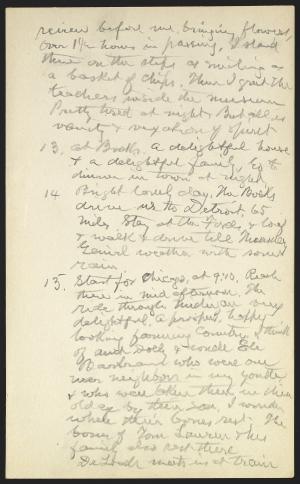 review before me, bringing flowers,
over 1½ hours in passing. I stand
there on the steps as smiling as
a basket of chips. Then I greet the
teachers inside the museum
Pretty tired at night. But all is
vanity & vexation of spirit
13. At Booths. A delightful house
& a delightful family. Go to
dinner in town at night
14 Bright lovely day. The Booths
drive us to Detroit, 65
miles. Stay at the Fords, & loaf
& walk & drive till
Genial weather with some
rain
15. Start for Chicago, at 9:40. Reach
there in mid afternoon. The
ride through Michigan very
delightful. A prosperous, happy
looking farming country. I think
of aunt Dolly & uncle
who were our
near neighbors in my youth
& who were taken there in their
old age by their son. I wonder
where their bones rest. The
bones of Tom & his
family also rest there
meets us at train